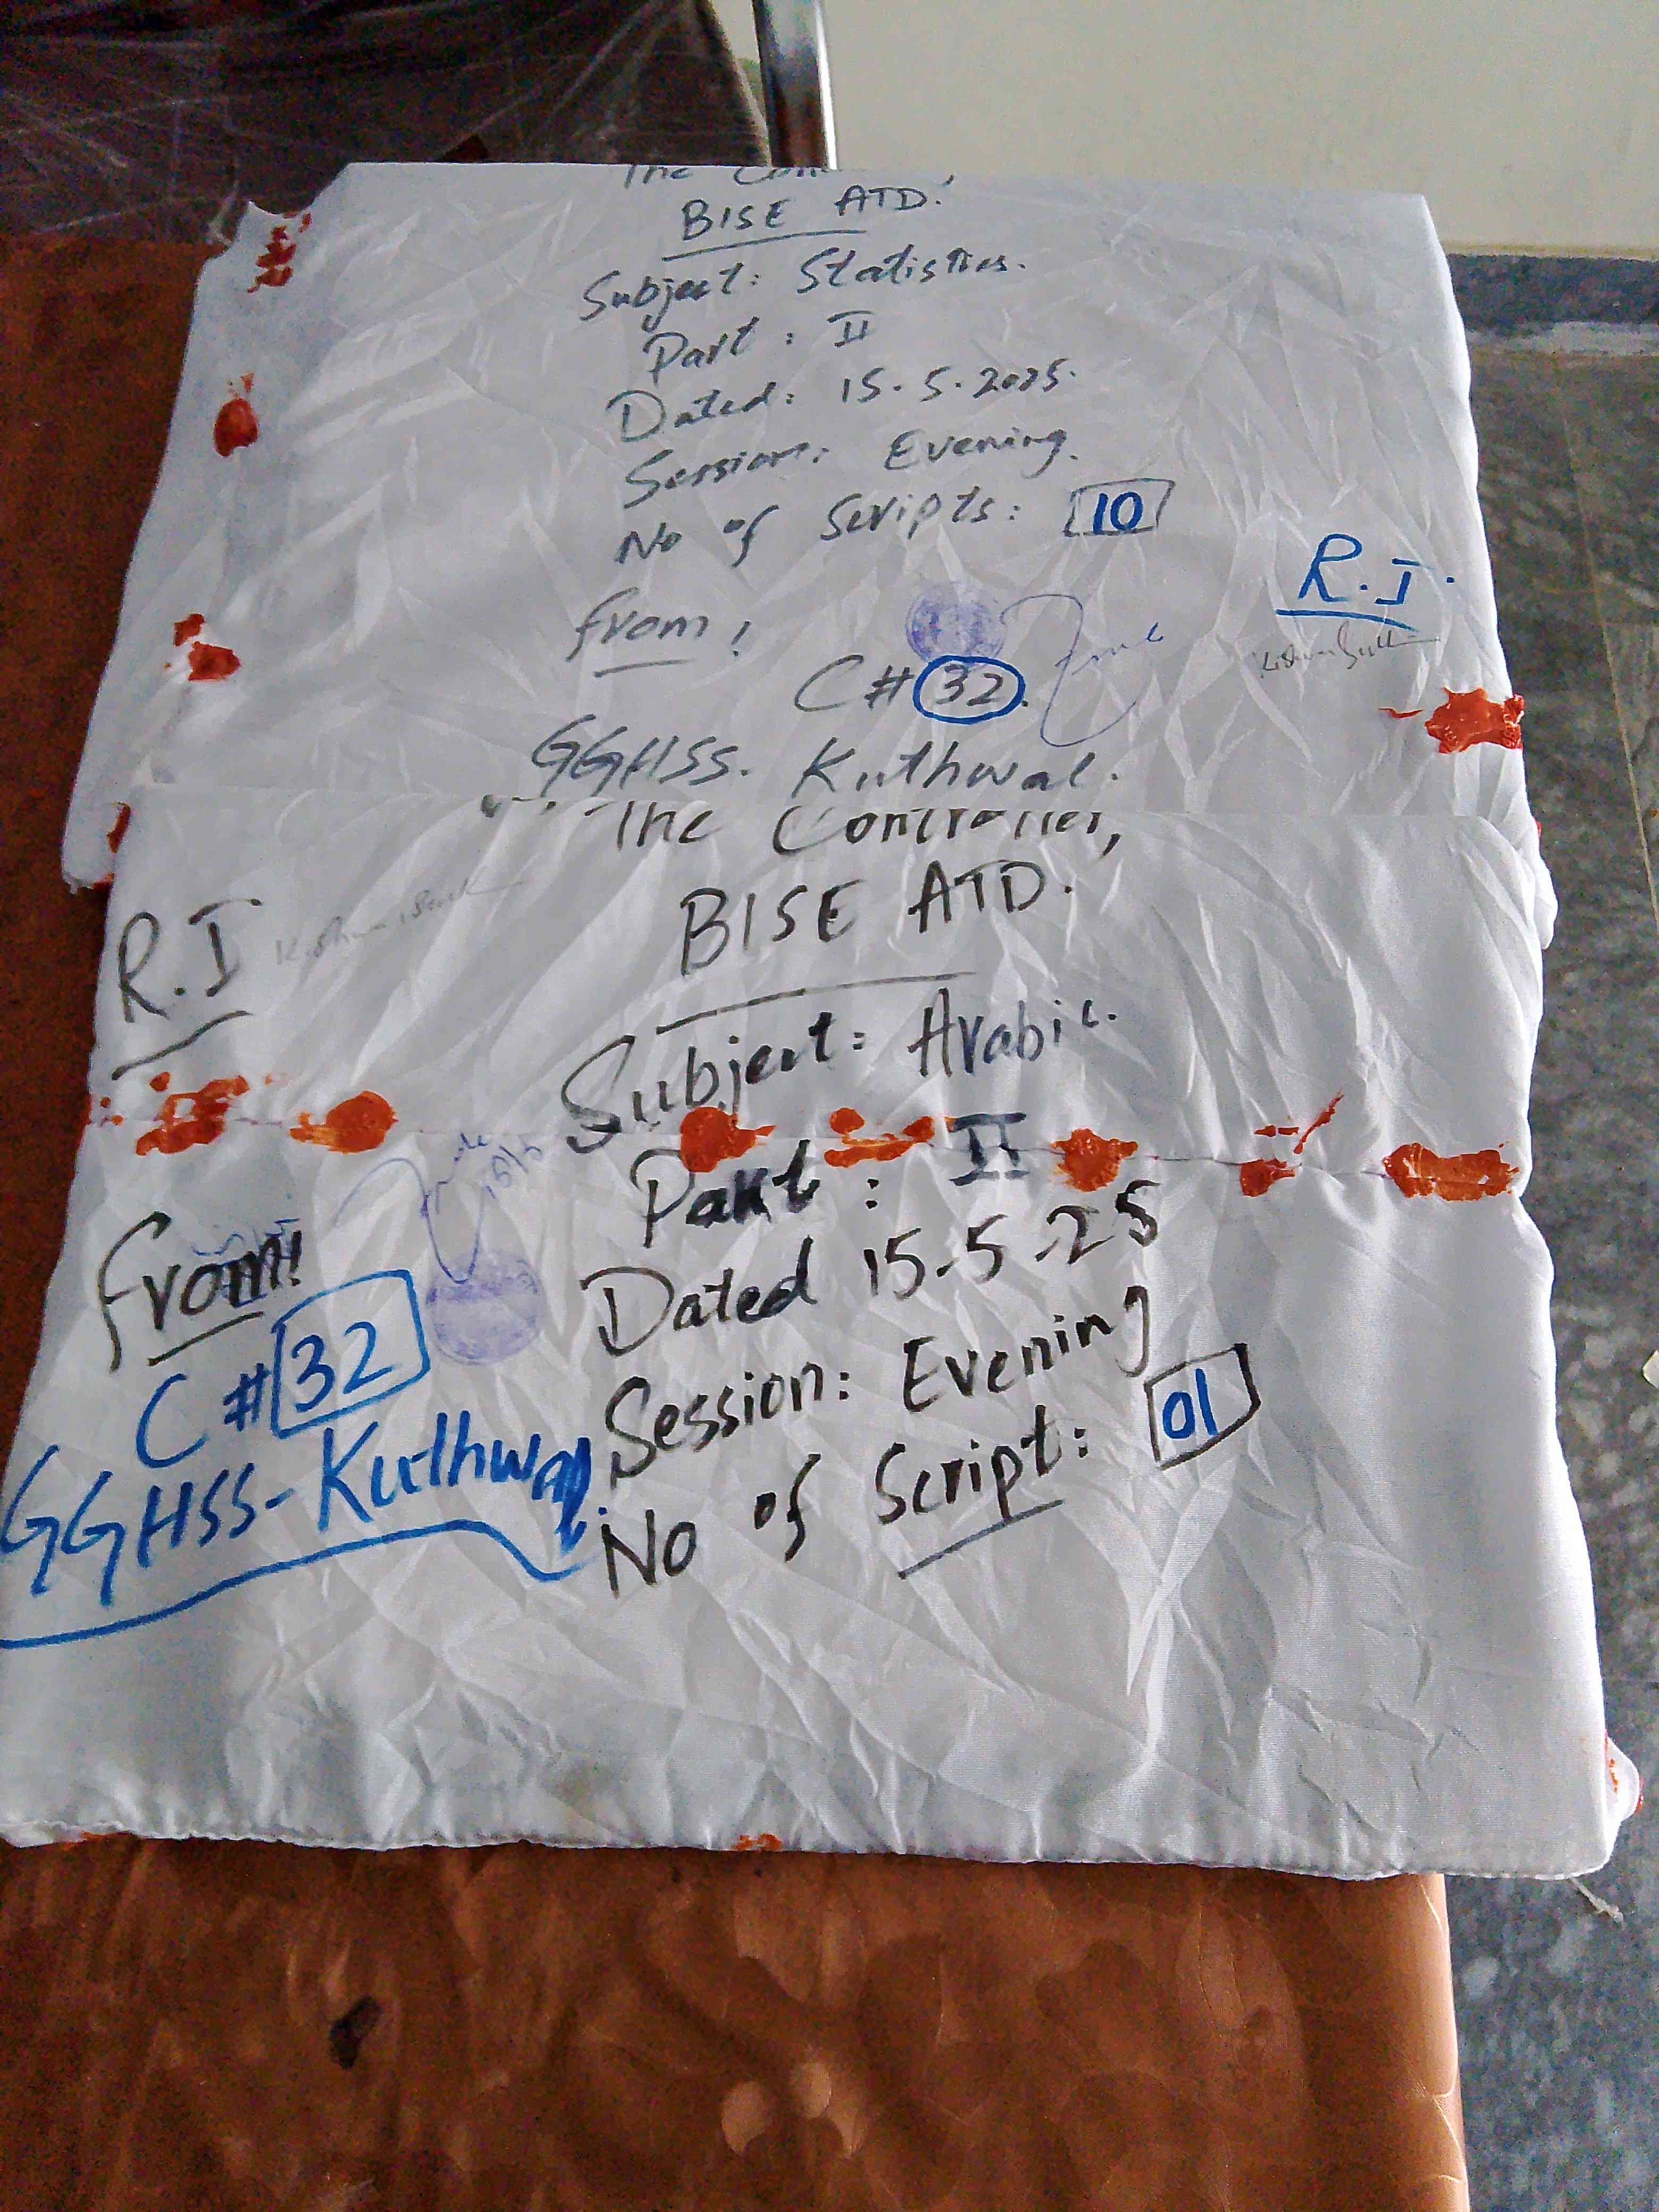 The
BISE ATD.
Subject: Statistics.
Part : II
Dated: 15.5.2025.
Session: Evening.
No of Scripts: 10
R.I.
from:
C# 32.
GGHSS. Kuthwal.
The Controller,
BISE ATD.
R.I
Subject: Arabic.
Part : II
15/5
Dated 15-5-25
from:
Session: Evening
C # 32
No of Script: 01
GGHSS-Kuthwal.